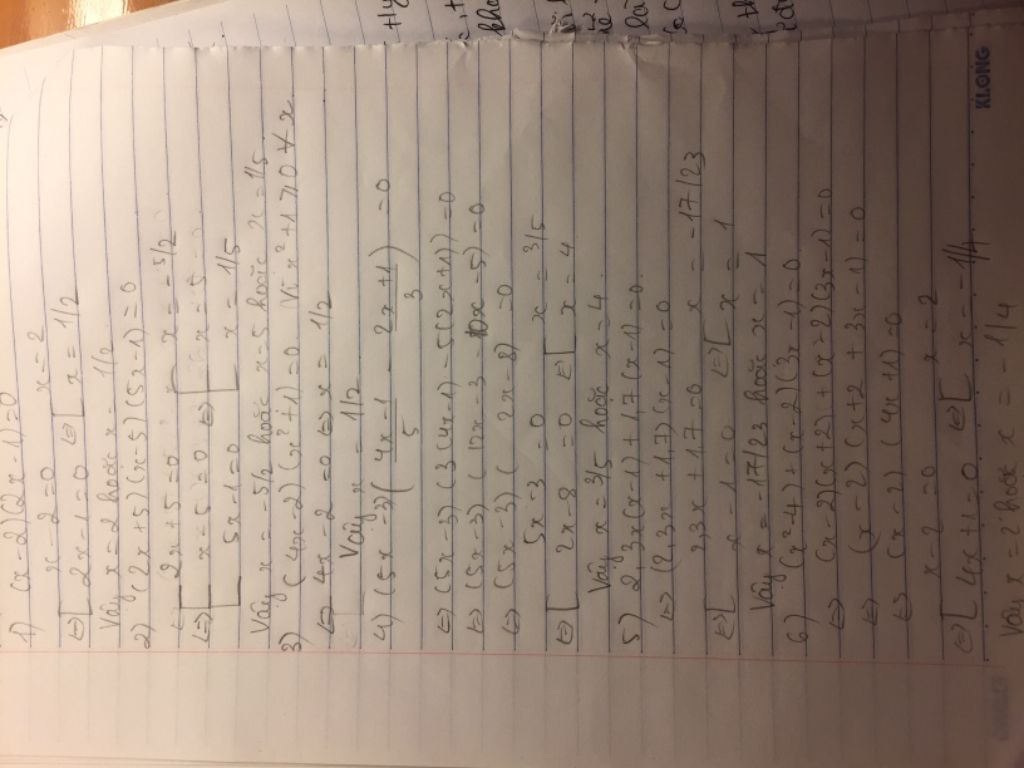 1) (x-2)(2x-1)=0
x-2=0 x=2
⇔ [ 2x-1=0 ⇔ [ x=1/2
Vậy x=2 hoặc x=1/2
2) (2x+5)(x-5)(5x-1)=0
2x+5=0 x=-5/2
⇔ [ x-5=0 ⇔ [ x=5
5x-1=0 x=1/5
Vậy x=-5/2 hoặc x=5 hoặc x=1/5
3) (4x-2)(x²+1)=0 Vì x²+1>0 ∀x
⇔ 4x-2=0 ⇔ x=1/2
Vậy x=1/2
4) (5x-3)(4x-1/5 - 2x+1/3)=0
⇔ (5x-3)(3(4x-1)-5(2x+1))=0
⇔ (5x-3)(12x-3-10x-5)=0
⇔ (5x-3)(2x-8)=0
5x-3=0 x=3/5
⇔ [ 2x-8=0 ⇔ [ x=4
Vậy x=3/5 hoặc x=4
5) 23x(x-1)+17(x-1)=0
⇔ (23x+17)(x-1)=0
23x+17=0 x=-17/23
⇔ [ x-1=0 ⇔ [ x=1
Vậy x=-17/23 hoặc x=1
6) (x²-4)+(x-2)(3x-1)=0
⇔ (x-2)(x+2)+(x-2)(3x-1)=0
⇔ (x-2)(x+2+3x-1)=0
⇔ (x-2)(4x+1)=0
x-2=0 x=2
⇔ [ 4x+1=0 ⇔ [ x=-1/4
Vậy x=2 hoặc x=-1/4
KLONG